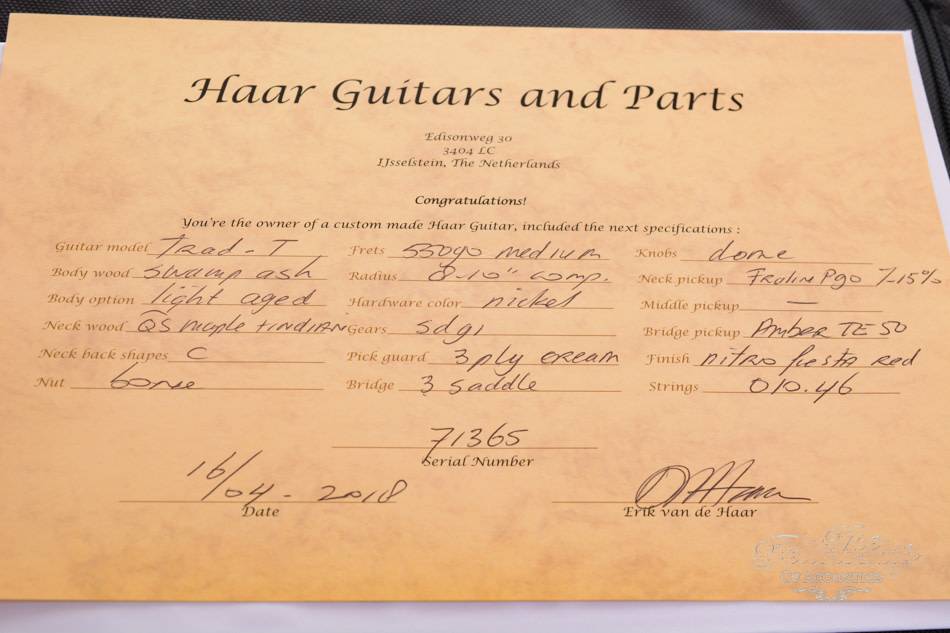 Haar Guitars and Parts
Edisonweg 30
3404 LC
IJsselstein, The Netherlands
Congratulations!
You're the owner of a custom made Haar Guitar, included the next specifications :
Guitar model Trad-T Frets 55090 medium Knobs dome
Body wood Swamp ash Radius 8-10" comp. Neck pickup Fralin P90 -15%
Body option light aged Hardware color nickel Middle pickup —
Neck wood QS maple + INDIAN Gears sdgi Bridge pickup Amber TE 50
Neck back shapes C Pick guard 3 ply cream Finish nitro fiesta red
Nut bone Bridge 3 saddle Strings 010.46
71365
Serial Number
16/04-2018
Date Erik van de Haar